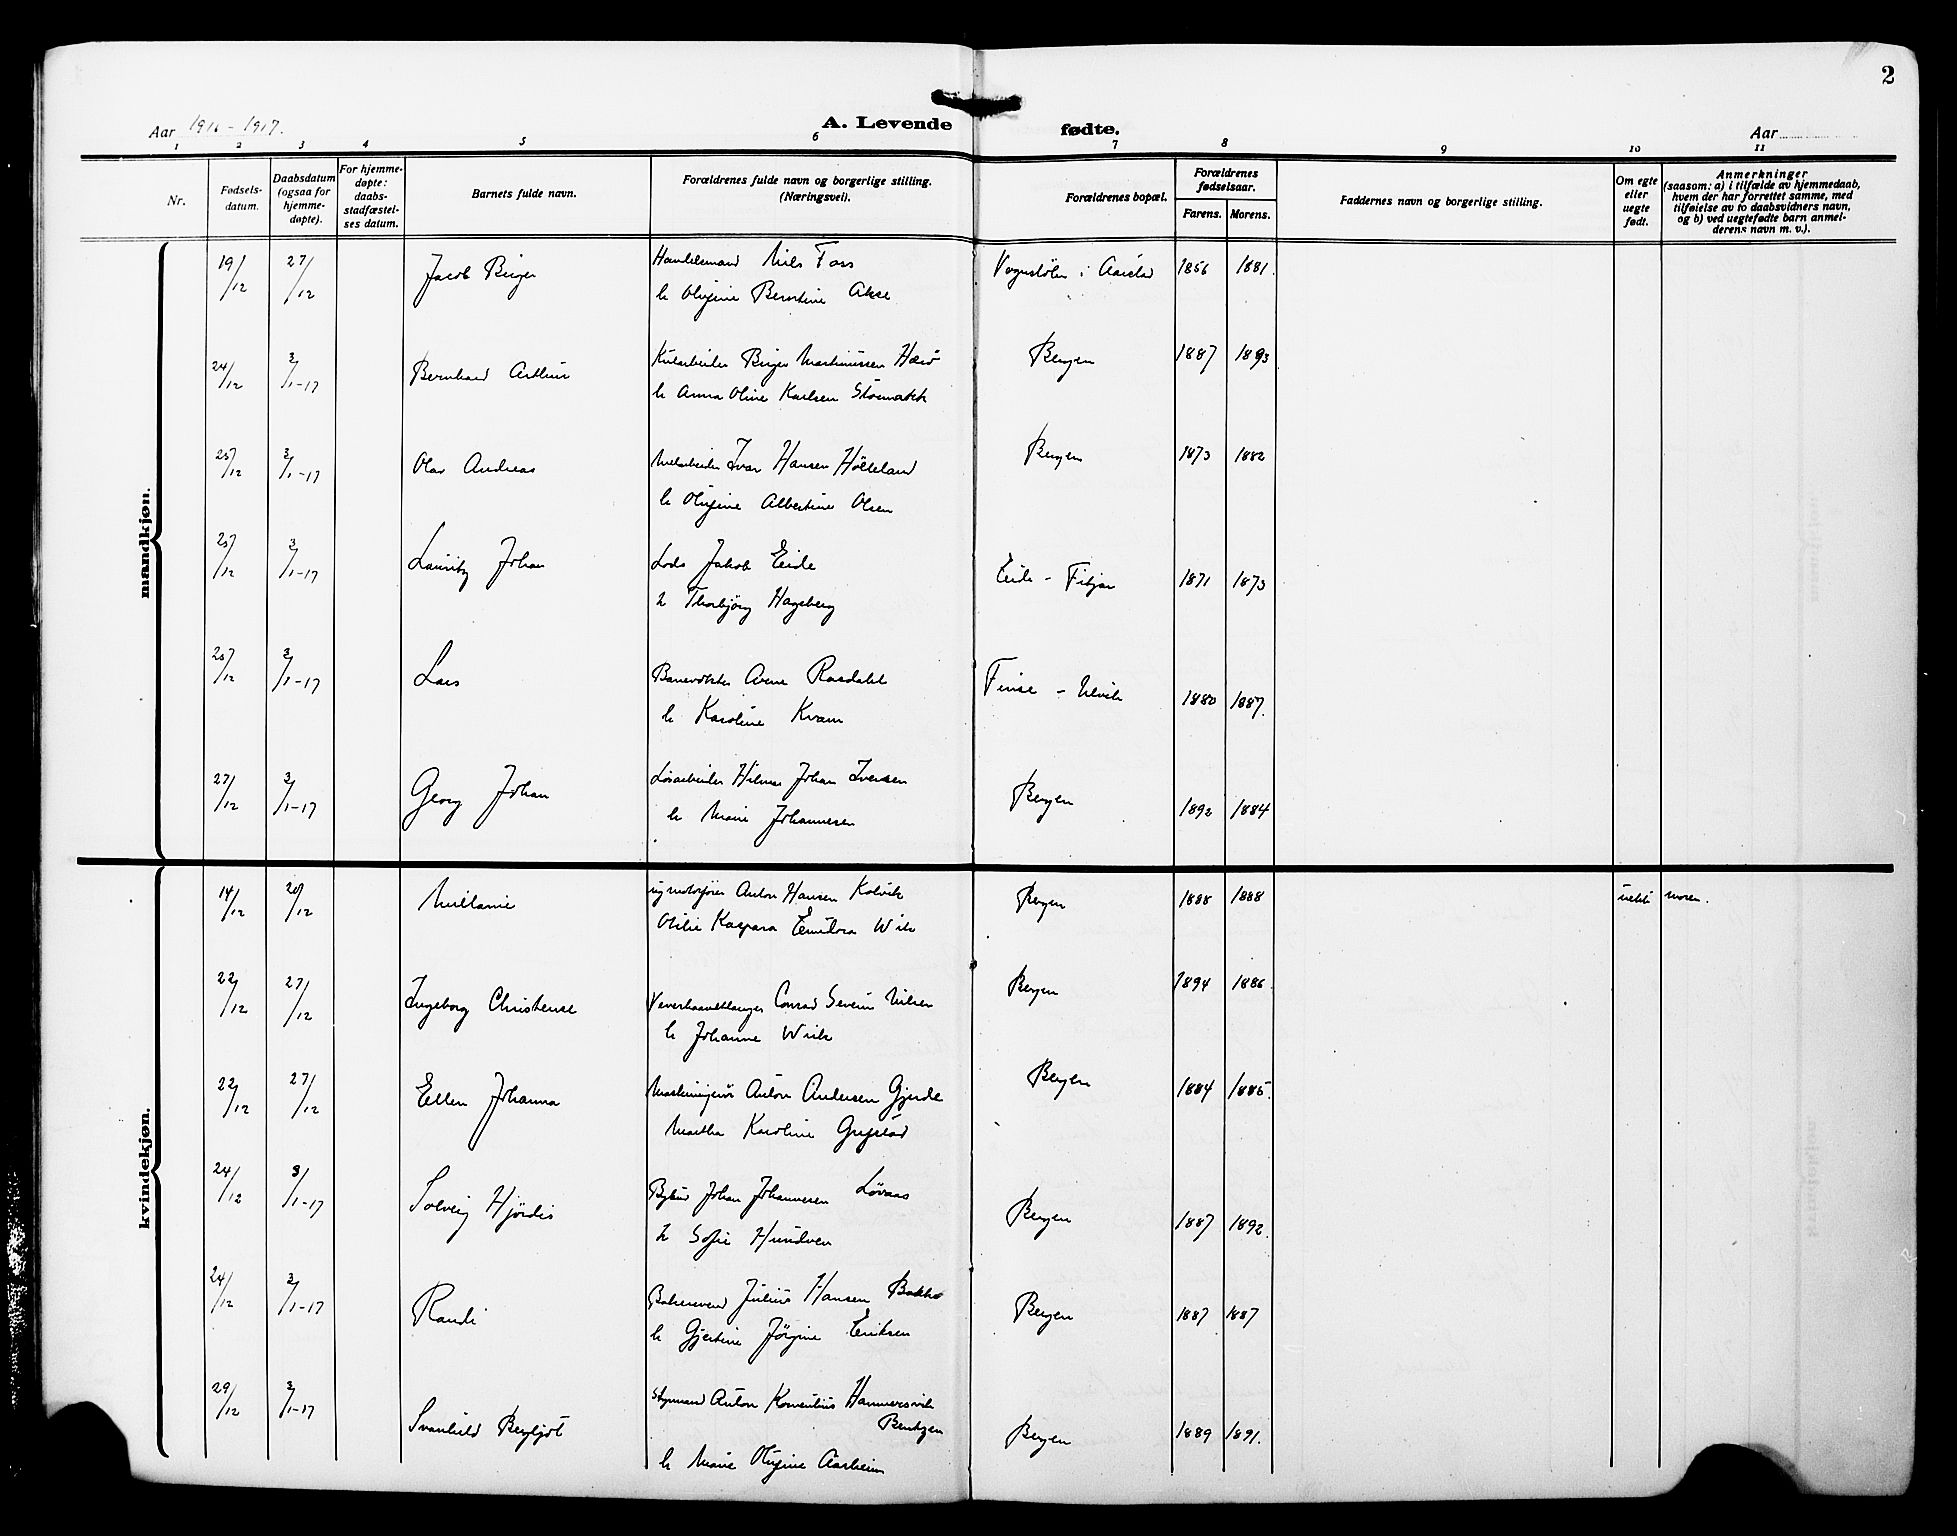 2
Aar 1916-1917. A. Levende fødte. Aar
1 2 3 4 5 6 7 8 9 10 11
Nr.
Fødsels-
datum.
Daabsdatum
(ogsaa for
hjemme-
døpte).
For hjemme-
døpte:
daabs-
stadfæstel-
ses datum.
Barnets fulde navn.
Forældrenes fulde navn og borgerlige stilling.
(Næringsvei).
Forældrenes bopæl.
Forældrenes
fødselsaar.
Farens. Morens.
Faddernes navn og borgerlige stilling.
Om egte
eller
uegte
født.
Anmerkninger
(saasom: a) i tilfælde av hjemmedaab,
hvem der har forrettet samme, med
tilføielse av to daabsvidners navn,
og b) ved uegtefødte barn anmel-
derens navn m. v.).
mandkjøn.
19/12 27/12 Jacob Birger Handelsmand Niels Foss Aarstad 1856 1881.
h Olufine Berntine Akse
24/12 3/1-17 Bernhard Arthur Birger Martinussen Bergen 1887 1893
h Anna Oline Karlsen
25/12 3/1-17 Olav Andreas Ivar Hansen Bergen 1873 1882
h Olufine Albertine Olsen
25/12 3/1-17 Lauritz Johan Lods Jakob Eide Eide - Fitjar 1871 1873
h Thorbjörg Hageberg
25/12 3/1-17 Lars Banevokter Finse - Ulvik 1880 1887.
h Karoline Kvam
27/12 3/1-17 Georg Johan Løsarbeider Hilmar Johan Iversen Bergen 1892 1884
h Marie Johannesen
kvindekjøn.
14/12 20/12 Anton Hansen Kolvik Bergen 1888 1888 uekte moren.
Otilie Kaspara Wik
22/12 27/12 Ingeborg Christense Conrad Severin Nilsen Bergen 1894 1886
h Johanne Wiik
22/12 27/12 Ellen Johanna Anton Andersen Gjerde Bergen 1884 1885.
Martha Karoline
24/12 3/1-17 Solveig Hjördis Bybud Johan Johannesen Lövaas Bergen 1887 1892.
h Sofie Hundven
24/12 3/1-17 Randi Bakersvend Julius Hansen Bakke Bergen 1887 1887
h Gjertine Jörgine Eriksen
29/12 3/1-17 Svanhild Bergljot Styrmand Anton Kornelius Hammersvik
Berntzen Bergen 1889 1891.
h Marie Olufine Aarheim